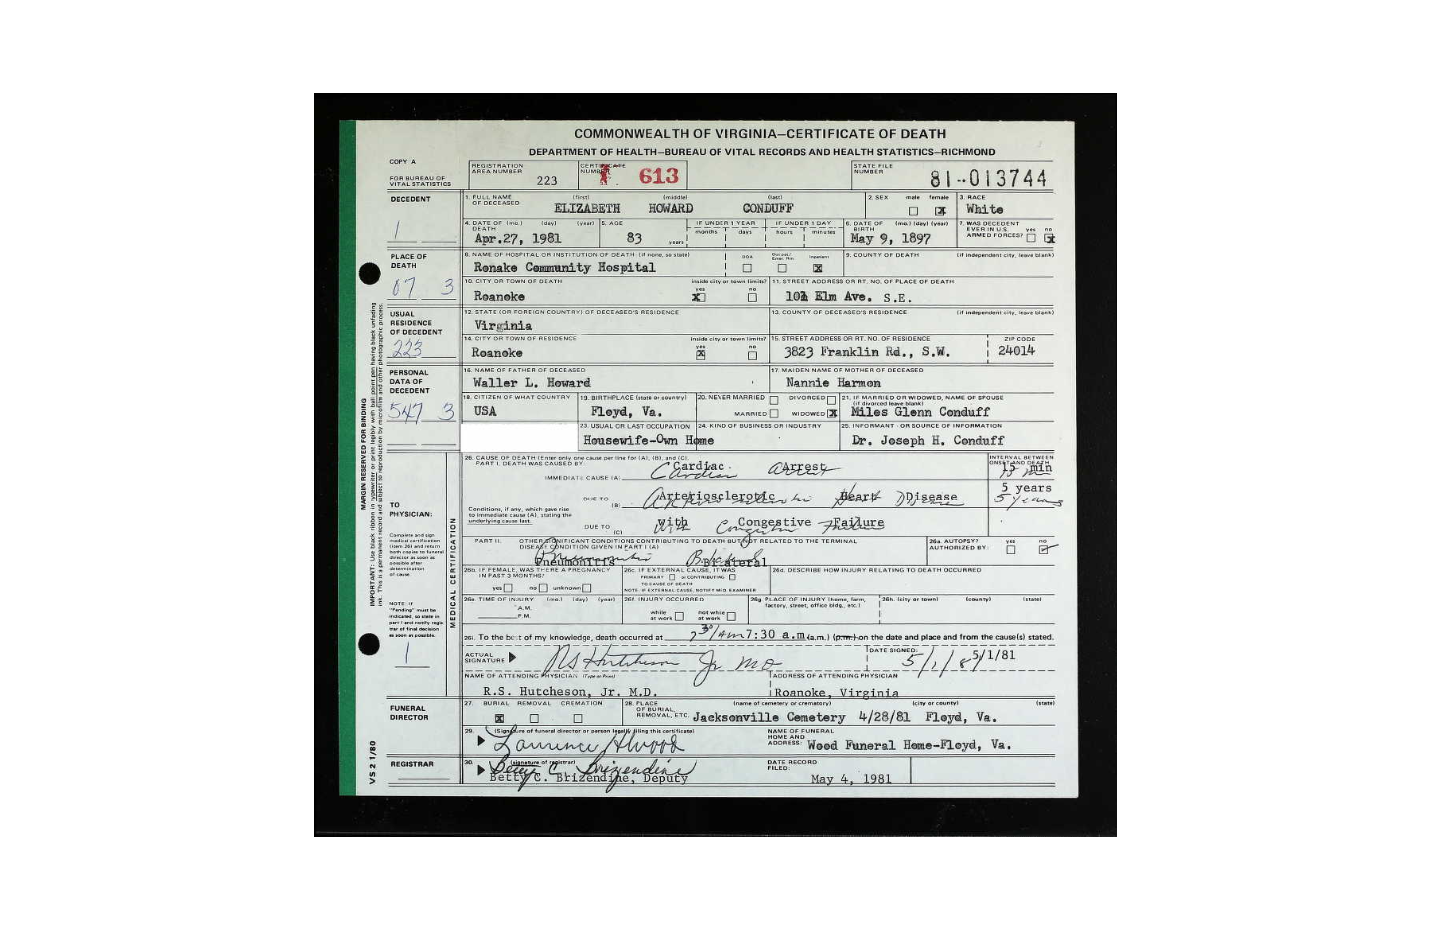 COMMONWEALTH OF VIRGINIA—CERTIFICATE OF DEATH
DEPARTMENT OF HEALTH—BUREAU OF VITAL RECORDS AND HEALTH STATISTICS—RICHMOND
COPY A
FOR BUREAU OF VITAL STATISTICS
REGISTRATION AREA NUMBER 223
CERTIFICATE NUMBER 613
STATE FILE NUMBER 81-013744
DECEDENT
1
1. FULL NAME OF DECEASED (first) (middle) (last)
ELIZABETH HOWARD CONDUFF
2. SEX male female X
3. RACE White
4. DATE OF DEATH (mo.) (day) (year) Apr.27, 1981
5. AGE 83 years
IF UNDER 1 YEAR months days
IF UNDER 1 DAY hours minutes
6. DATE OF BIRTH (mo.) (day) (year) May 9, 1897
7. WAS DECEDENT EVER IN U.S. ARMED FORCES? yes no X
PLACE OF DEATH
07 3
8. NAME OF HOSPITAL OR INSTITUTION OF DEATH (if none, so state)
Ronake Community Hospital
DOA Inpatient X
9. COUNTY OF DEATH (if independent city, leave blank)
10. CITY OR TOWN OF DEATH Roanoke
inside city or town limits? yes X no
11. STREET ADDRESS OR RT. NO. OF PLACE OF DEATH
Elm Ave. S.E.
USUAL RESIDENCE OF DECEDENT
223
12. STATE (OR FOREIGN COUNTRY) OF DECEASED'S RESIDENCE
Virginia
13. COUNTY OF DECEASED'S RESIDENCE (if independent city, leave blank)
14. CITY OR TOWN OF RESIDENCE Roanoke
inside city or town limits? yes X no
15. STREET ADDRESS OR RT. NO. OF RESIDENCE
3823 Franklin Rd., S.W.
ZIP CODE 24014
PERSONAL DATA OF DECEDENT
547 3
16. NAME OF FATHER OF DECEASED
Waller L. Howard
17. MAIDEN NAME OF MOTHER OF DECEASED
Nannie Harmon
18. CITIZEN OF WHAT COUNTRY USA
19. BIRTHPLACE (state or country) Floyd, Va.
20. NEVER MARRIED DIVORCED
MARRIED WIDOWED X
21. IF MARRIED OR WIDOWED, NAME OF SPOUSE (if divorced leave blank)
Miles Glenn Conduff
23. USUAL OR LAST OCCUPATION
Housewife-Own Home
24. KIND OF BUSINESS OR INDUSTRY
25. INFORMANT - OR SOURCE OF INFORMATION
Dr. Joseph H. Conduff
MARGIN RESERVED FOR BINDING
MEDICAL CERTIFICATION
TO PHYSICIAN:
Complete and sign medical certification (item 26) and return both copies to funeral director as soon as possible after determination of cause
NOTE: If "Pending" must be indicated, so state in part I and notify registrar of final decision as soon as possible.
1
26. CAUSE OF DEATH (Enter only one cause per line for (A), (B), and (C).
PART I. DEATH WAS CAUSED BY:
IMMEDIATE CAUSE (A) Cardiac Arrest
INTERVAL BETWEEN ONSET AND DEATH
15 min
Conditions, if any, which gave rise to immediate cause (A), stating the underlying cause last.
DUE TO (B) Arteriosclerotic Heart Disease
5 years
5 years
DUE TO (C) With Congestive Failure
PART II. OTHER SIGNIFICANT CONDITIONS CONTRIBUTING TO DEATH BUT NOT RELATED TO THE TERMINAL DISEASE CONDITION GIVEN IN PART I (A)
Pneumonitis Bilateral
26a. AUTOPSY? AUTHORIZED BY: yes no
26b. IF FEMALE, WAS THERE A PREGNANCY IN PAST 3 MONTHS?
yes no unknown
26c. IF EXTERNAL CAUSE, IT WAS
PRIMARY or CONTRIBUTING
TO CAUSE OF DEATH
NOTE: IF EXTERNAL CAUSE, NOTIFY MED. EXAMINER
26d. DESCRIBE HOW INJURY RELATING TO DEATH OCCURRED
26e. TIME OF INJURY (mo.) (day) (year)
A.M.
P.M.
26f. INJURY OCCURRED
while at work not while at work
26g. PLACE OF INJURY (home, farm, factory, street, office bldg., etc.)
26h. (city or town) (county) (state)
26i. To the best of my knowledge, death occurred at 7:30 a.m (a.m.) (p.m.) on the date and place and from the cause(s) stated.
ACTUAL SIGNATURE RS Hutcheson Jr MD
DATE SIGNED: 5/1/8 5/1/81
NAME OF ATTENDING PHYSICIAN (Type or Print)
R.S. Hutcheson, Jr. M.D.
ADDRESS OF ATTENDING PHYSICIAN
Roanoke, Virginia
FUNERAL DIRECTOR
27. BURIAL REMOVAL CREMATION
X
28. PLACE OF BURIAL, REMOVAL, ETC. (name of cemetery or crematory) (city or county) (state)
Jacksonville Cemetery 4/28/81 Floyd, Va.
29. (Signature of funeral director or person legally filing this certificate)
NAME OF FUNERAL HOME AND ADDRESS: Wood Funeral Home-Floyd, Va.
REGISTRAR
30. (signature of registrar)
Betty C. Brizendine
Betty C. Brizendine, Deputy
DATE RECORD FILED: May 4, 1981
VS 2 1/80